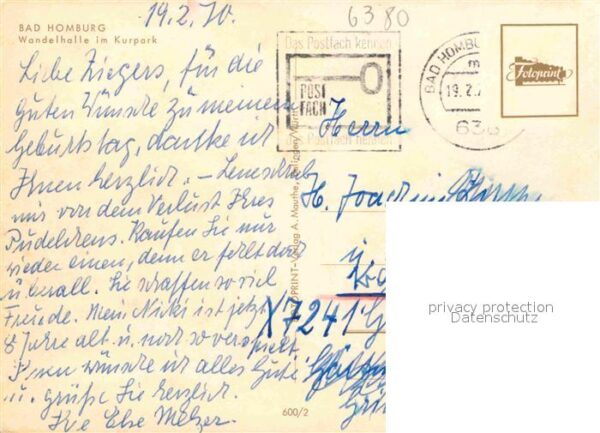 19.2.70.
6380
BAD HOMBURG
Wandelhalle im Kurpark
Liebe Ziegers, für die
guten Wünsche zu meinem
Geburtstag, danke ich
Ihnen herzlich. –
mir von dem Verlust Ihres
Pudelchens. Kaufen Sie nur
wieder einen, denn er fehlt doch
überall. Sie schaffen so viel
Freude. Mein Nicki ist jetzt
8 Jahre alt u. noch so verspielt.
Ihnen wünsche ich alles Gute
u. grüße Sie herzlich.
Ihre Else
Das Postfach kennen
POST
FACH
BAD HOMBU
19.2.7
638
Fotoprint
Herrn
H. Joachim
X7241 G
600/2
privacy protection
Datenschutz